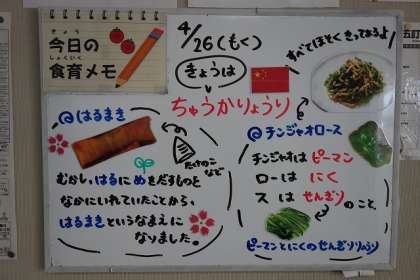 きょう
今日の
しょくいく
食育メモ
4/26(もく)
きょうは
ちゅうかりょうり
すべてほそくきってあるよ
@はるまき
たけのこ
など
むかし、はるにめをだすものを
なかにいれていたことから、
はるまきというなまえに
なりました。
@チンジャオロース
チンジャオはピーマン
ローは にく
スは せんぎり のこと
ピーマンとにくのせんぎりりょうり